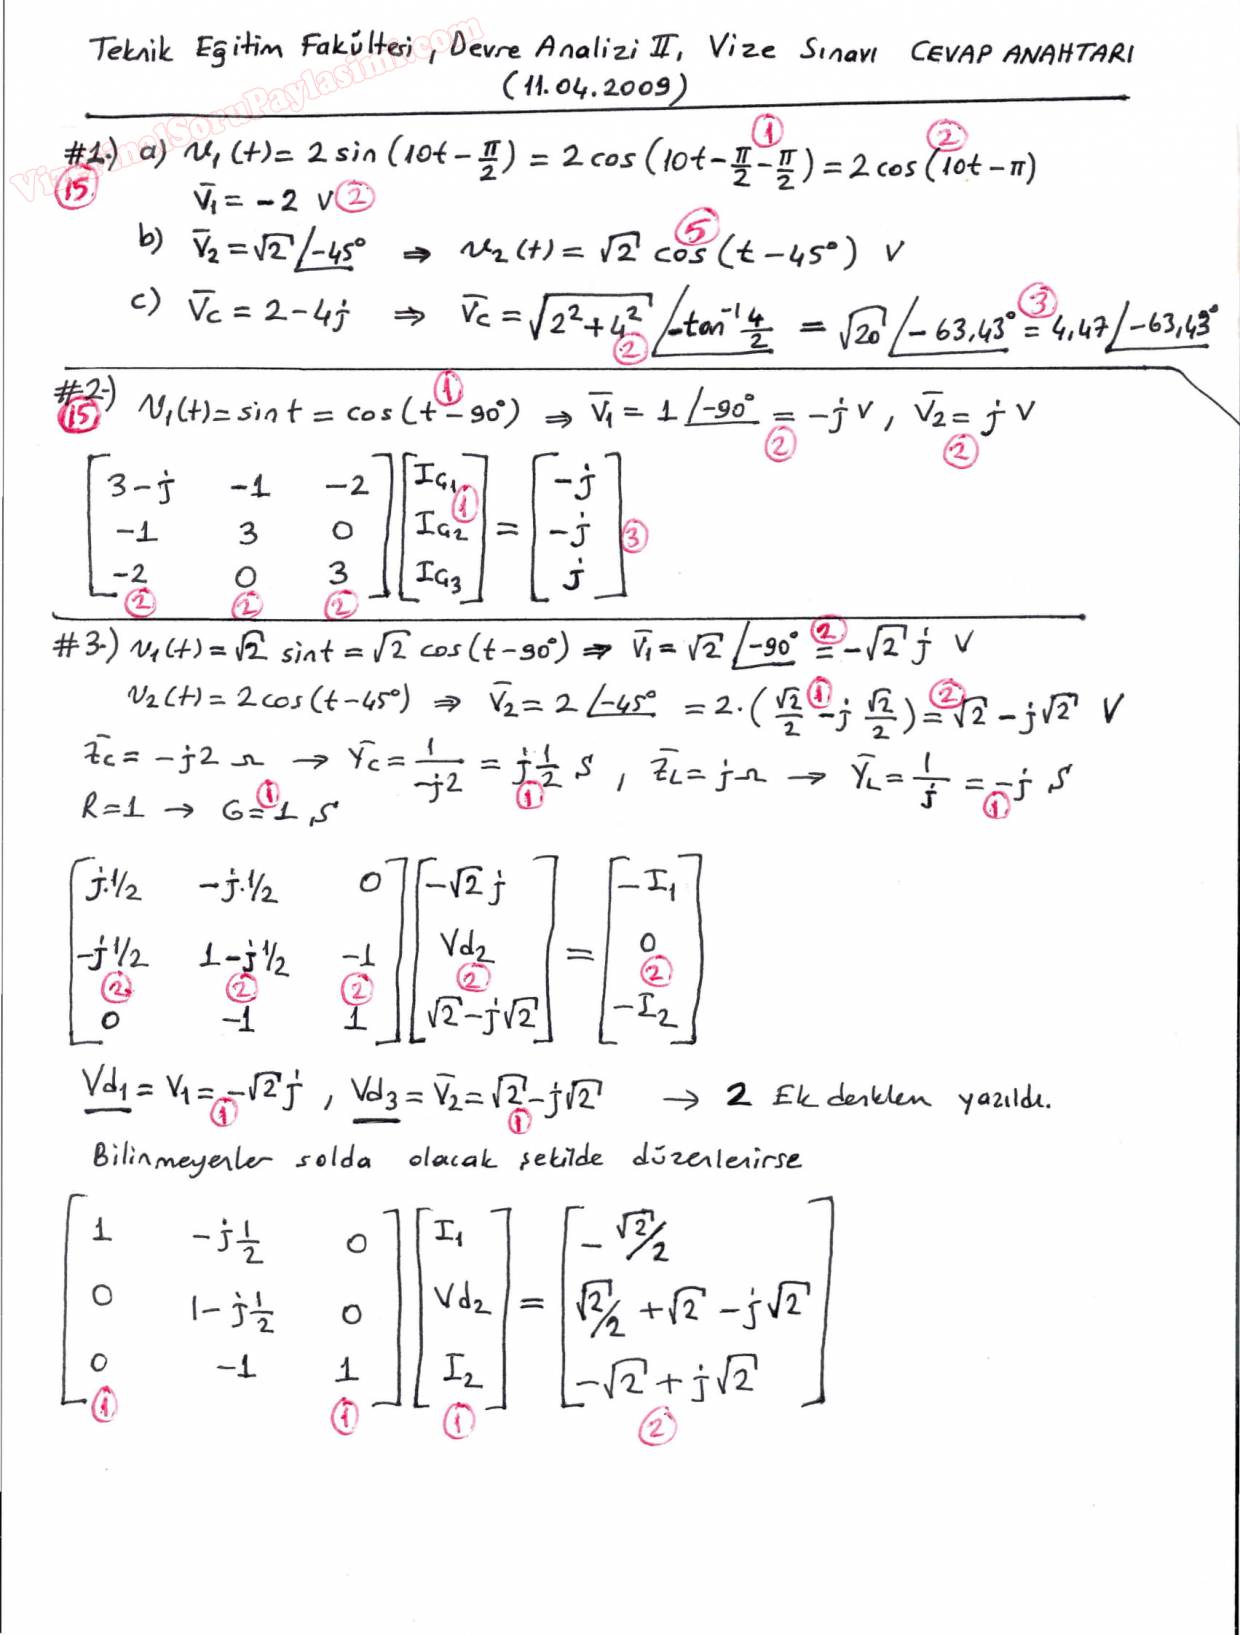 Teknik Eğitim Fakültesi, Devre Analizi II, Vize Sınavı CEVAP ANAHTARI
(11.04.2009)
VizeFinalSoruPaylasimi.com
#1.) a) v₁(t) = 2 sin(10t - π/2) = 2 cos(10t - π/2 - π/2) = 2 cos(10t - π) ① ②
⑮ V̄₁ = -2 V ②
b) V̄₂ = √2 /-45° ⇒ v₂(t) = √2 cos(t - 45°) V ⑤
c) V̄c = 2 - 4j ⇒ V̄c = √(2² + 4²) /-tan⁻¹ 4/2 = √20 /-63,43° = 4,47 /-63,43° ② ③
#2-) v₁(t) = sin t = cos(t - 90°) ⇒ V̄₁ = 1 /-90° = -j V, V̄₂ = j V ① ② ②
⑮
[3-j -1 -2] [I_G1] = [-j]
[-1 3 0] [I_G2] = [-j] ① ③
[-2 0 3] [I_G3] = [j]
② ② ②
#3-) v₁(t) = √2 sin t = √2 cos(t - 90°) ⇒ V̄₁ = √2 /-90° = -√2 j V ②
v₂(t) = 2 cos(t - 45°) ⇒ V̄₂ = 2 /-45° = 2·(√2/2 - j √2/2) = √2 - j√2 V ① ②
Z̄c = -j2 Ω → Ȳc = 1/-j2 = j 1/2 S, Z̄L = j Ω → ȲL = 1/j = -j S ① ①
R = 1 → G = 1 S ①
[j·1/2 -j·1/2 0] [-√2 j] = [-I₁]
[-j 1/2 1-j 1/2 -1] [Vd₂] = [0]
② ② ② ② ②
[0 -1 1] [√2 - j√2] = [-I₂]
Vd₁ = V₁ = -√2 j, Vd₃ = V̄₂ = √2 - j√2 → 2 Ek denklem yazıldı. ① ①
Bilinmeyenler solda olacak şekilde düzenlenirse
[1 -j 1/2 0] [I₁] = [-√2/2]
[0 1-j 1/2 0] [Vd₂] = [√2/2 + √2 - j√2]
[0 -1 1] [I₂] = [-√2 + j√2]
① ① ① ②